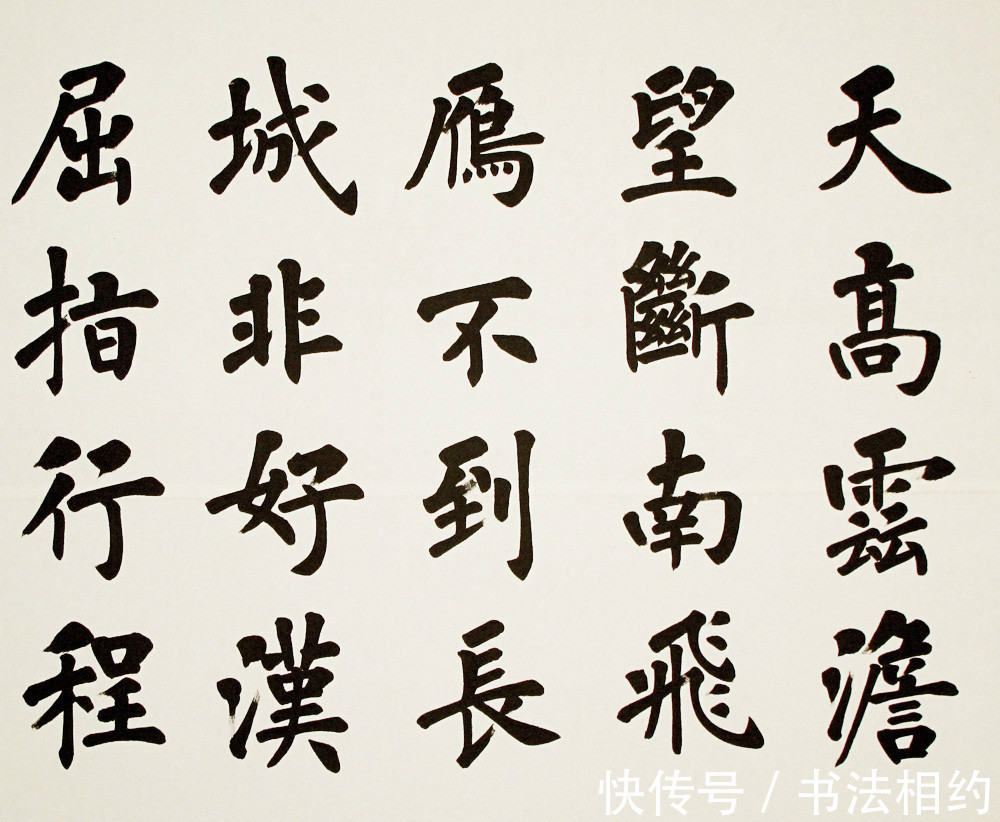 天高雲澹
望斷南飛
鴈不到長
城非好漢
屈指行程
快传号 / 书法相约